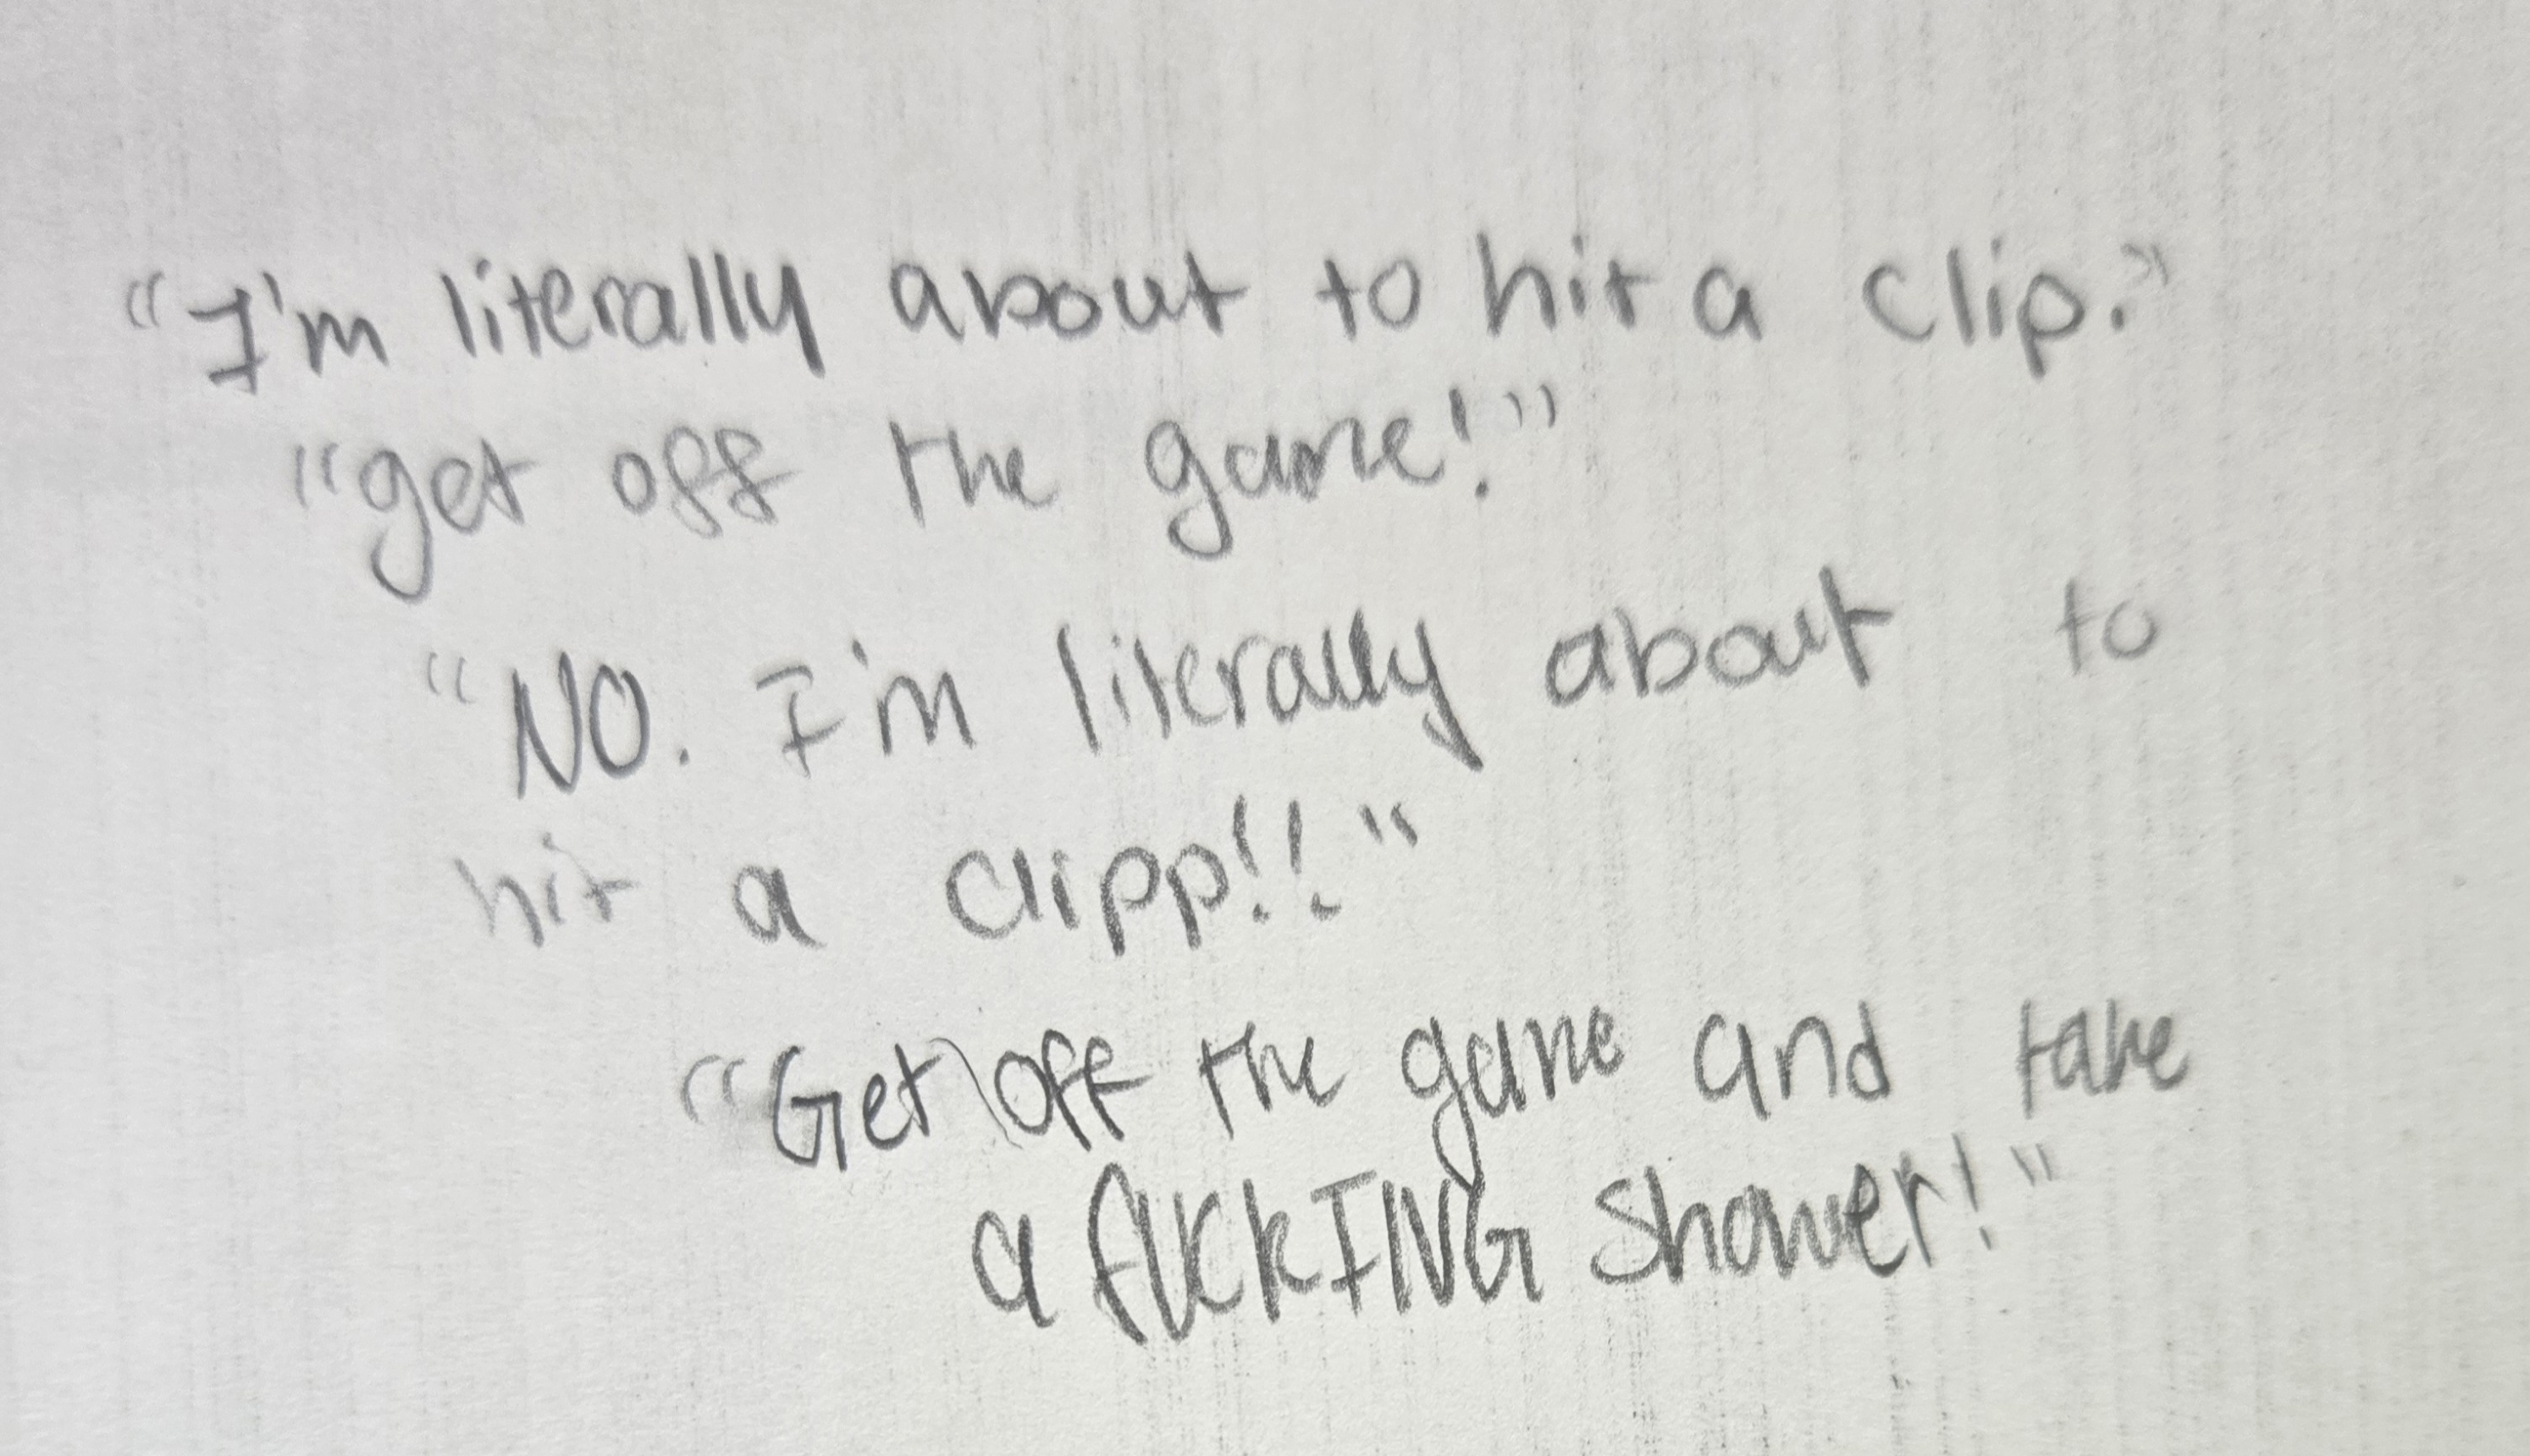 "I'm literally about to hit a clip."
"get off the game!"
"NO. I'm literally about to
hit a clipp!!"
"Get off the game and take
a fUCkING shower!"